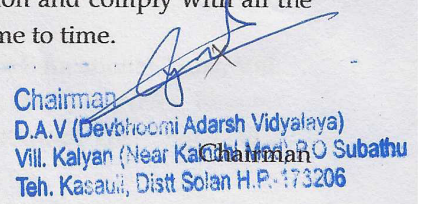 ion and comply with all the
me to time.
Chairman
D.A.V (Devbhoomi Adarsh Vidyalaya)
Vill. Kalyan (Near P.O Subathu
Chairman
Teh. Kasauli, Distt Solan H.P.-173206